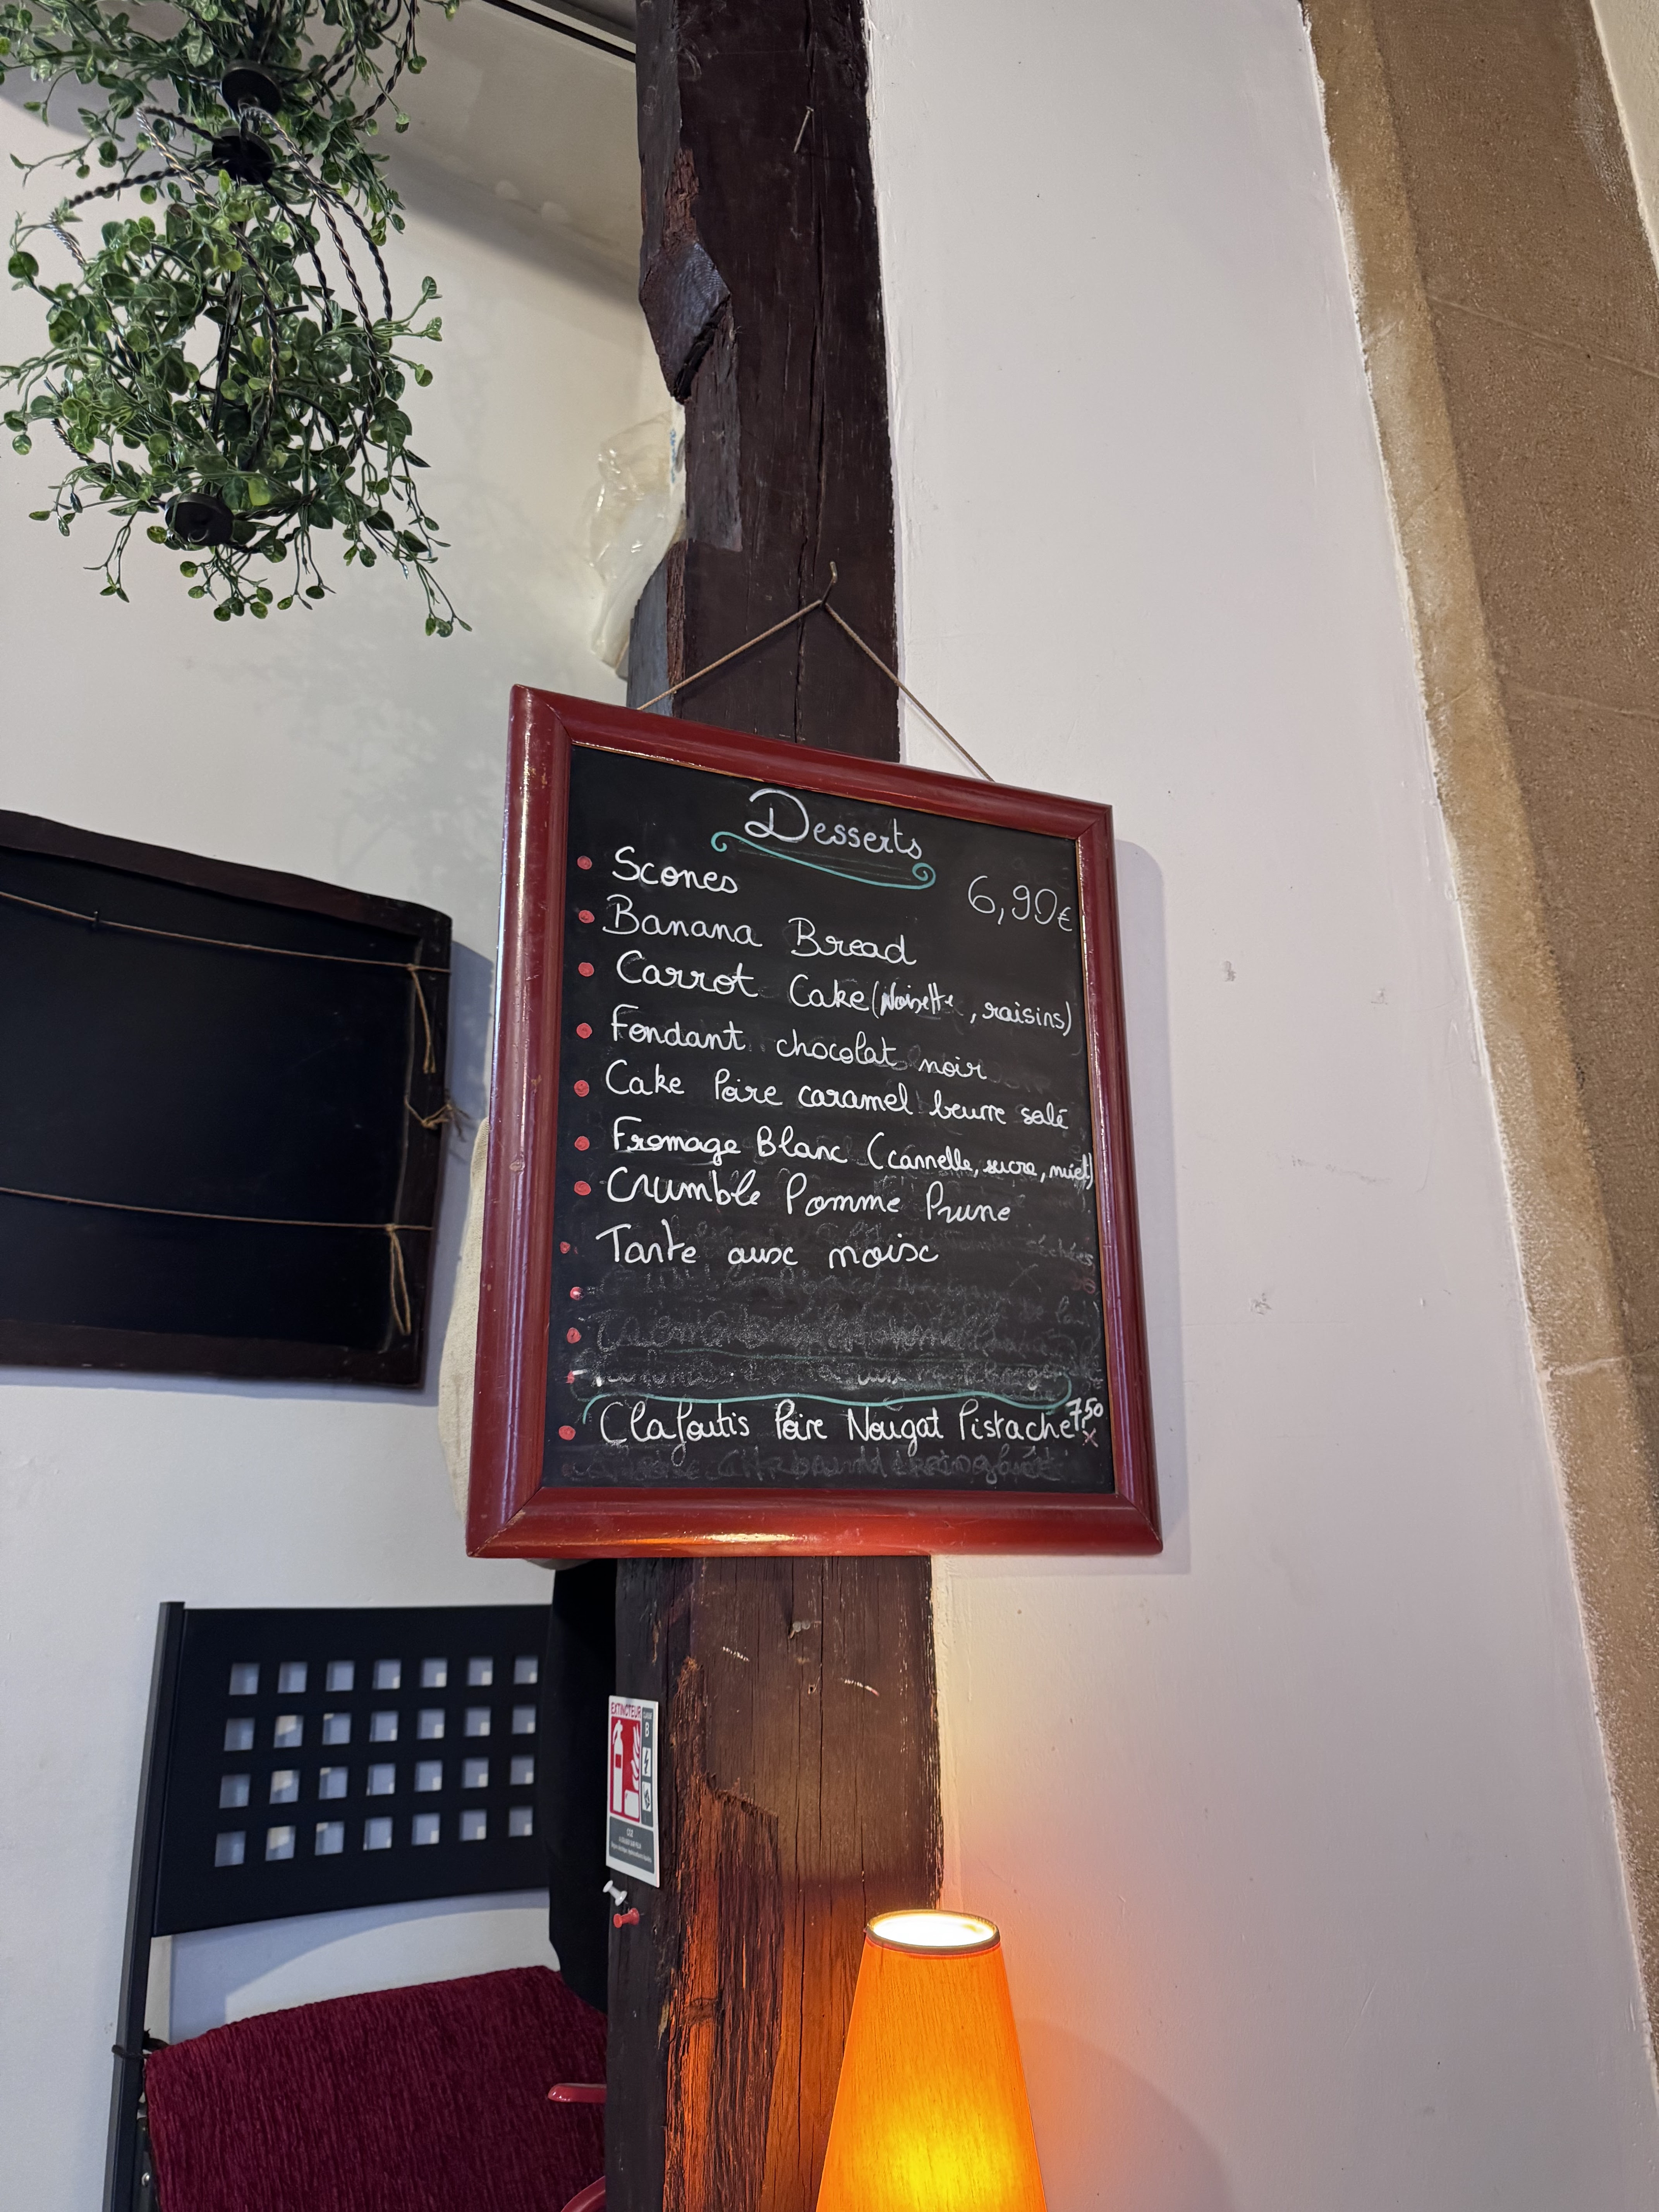 Desserts
Scones
6,90€
Banana Bread
Carrot Cake (Noisette, raisins)
Fondant chocolat noir
Cake Poire caramel beurre salé
Fromage Blanc (cannelle, sucre, miel)
Crumble Pomme Prune
Tarte aux noix
Clafoutis Poire Nougat Pistache 7,50
EXTINCTEUR
B